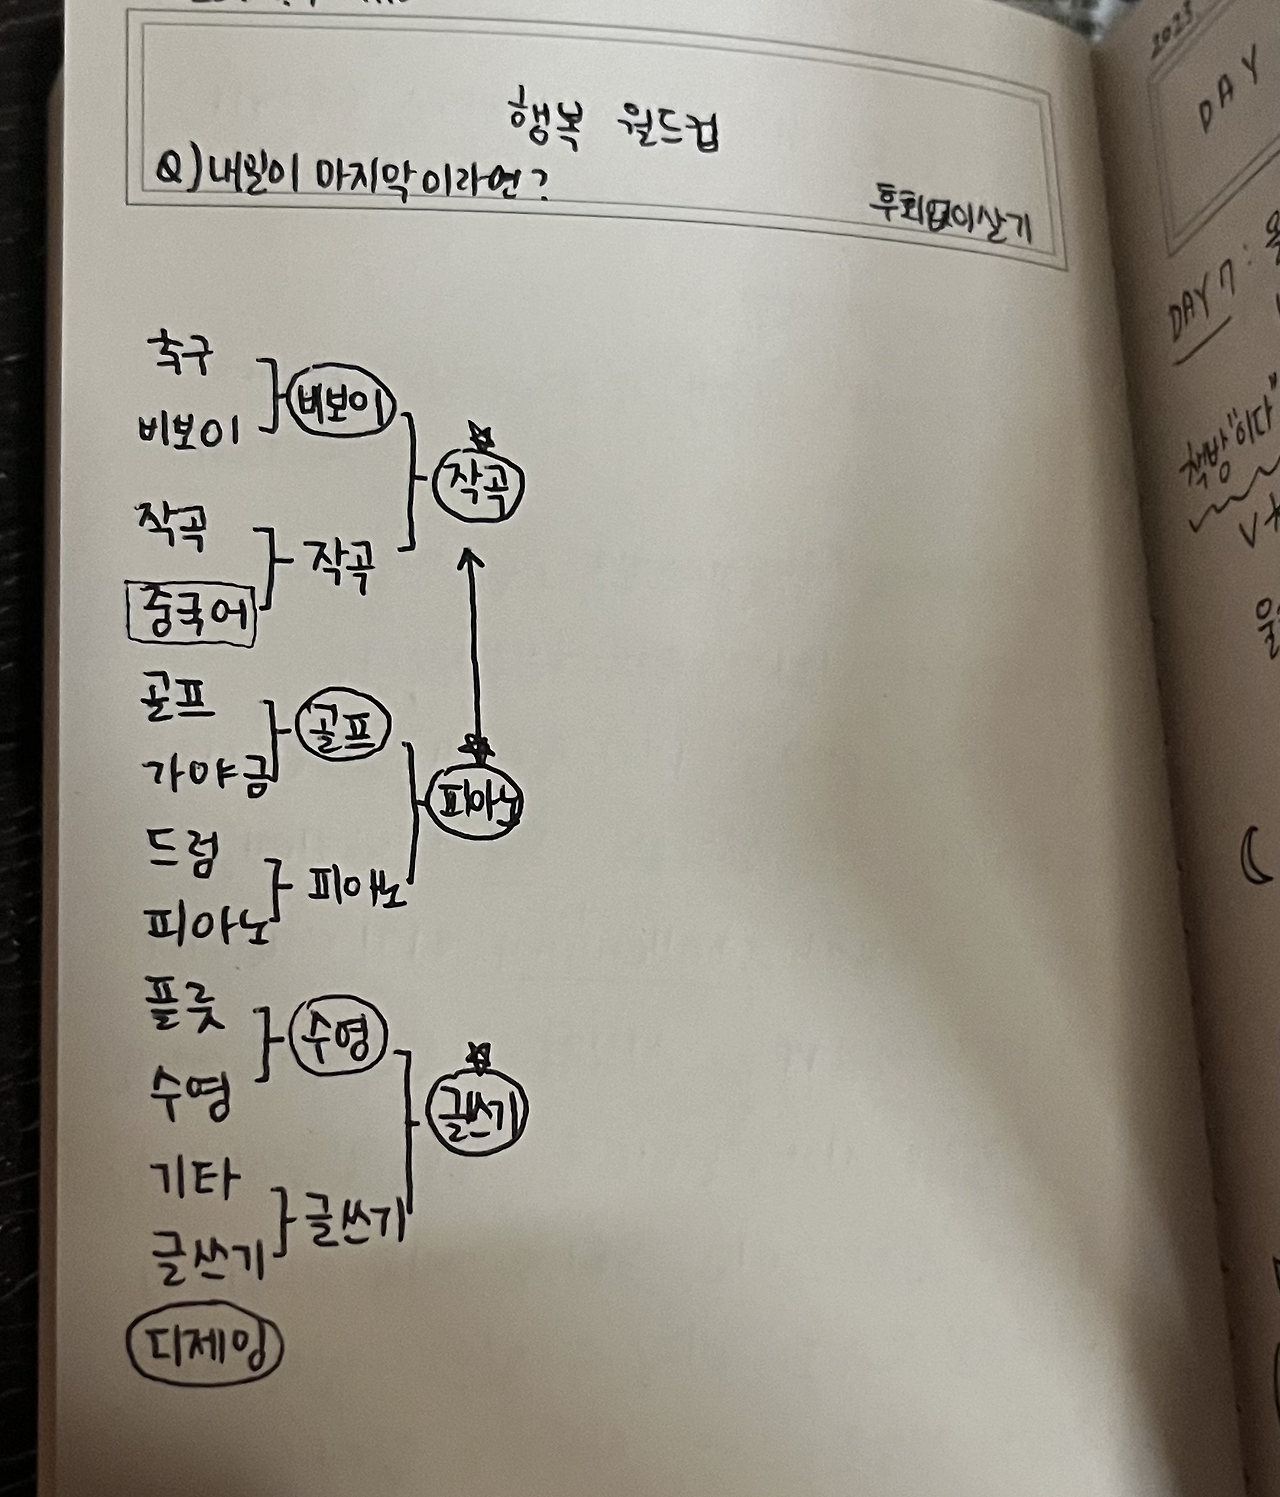 행복 월드컵
Q) 내일이 마지막이라면?
후회없이살기
축구
비보이
비보이
작곡
작곡
작곡
중국어
골프
골프
가야금
피아노
드럼
피아노
피아노
플룻
수영
수영
글쓰기
기타
글쓰기
글쓰기
디제잉
2023
DAY
DAY 7:
책방"이다"